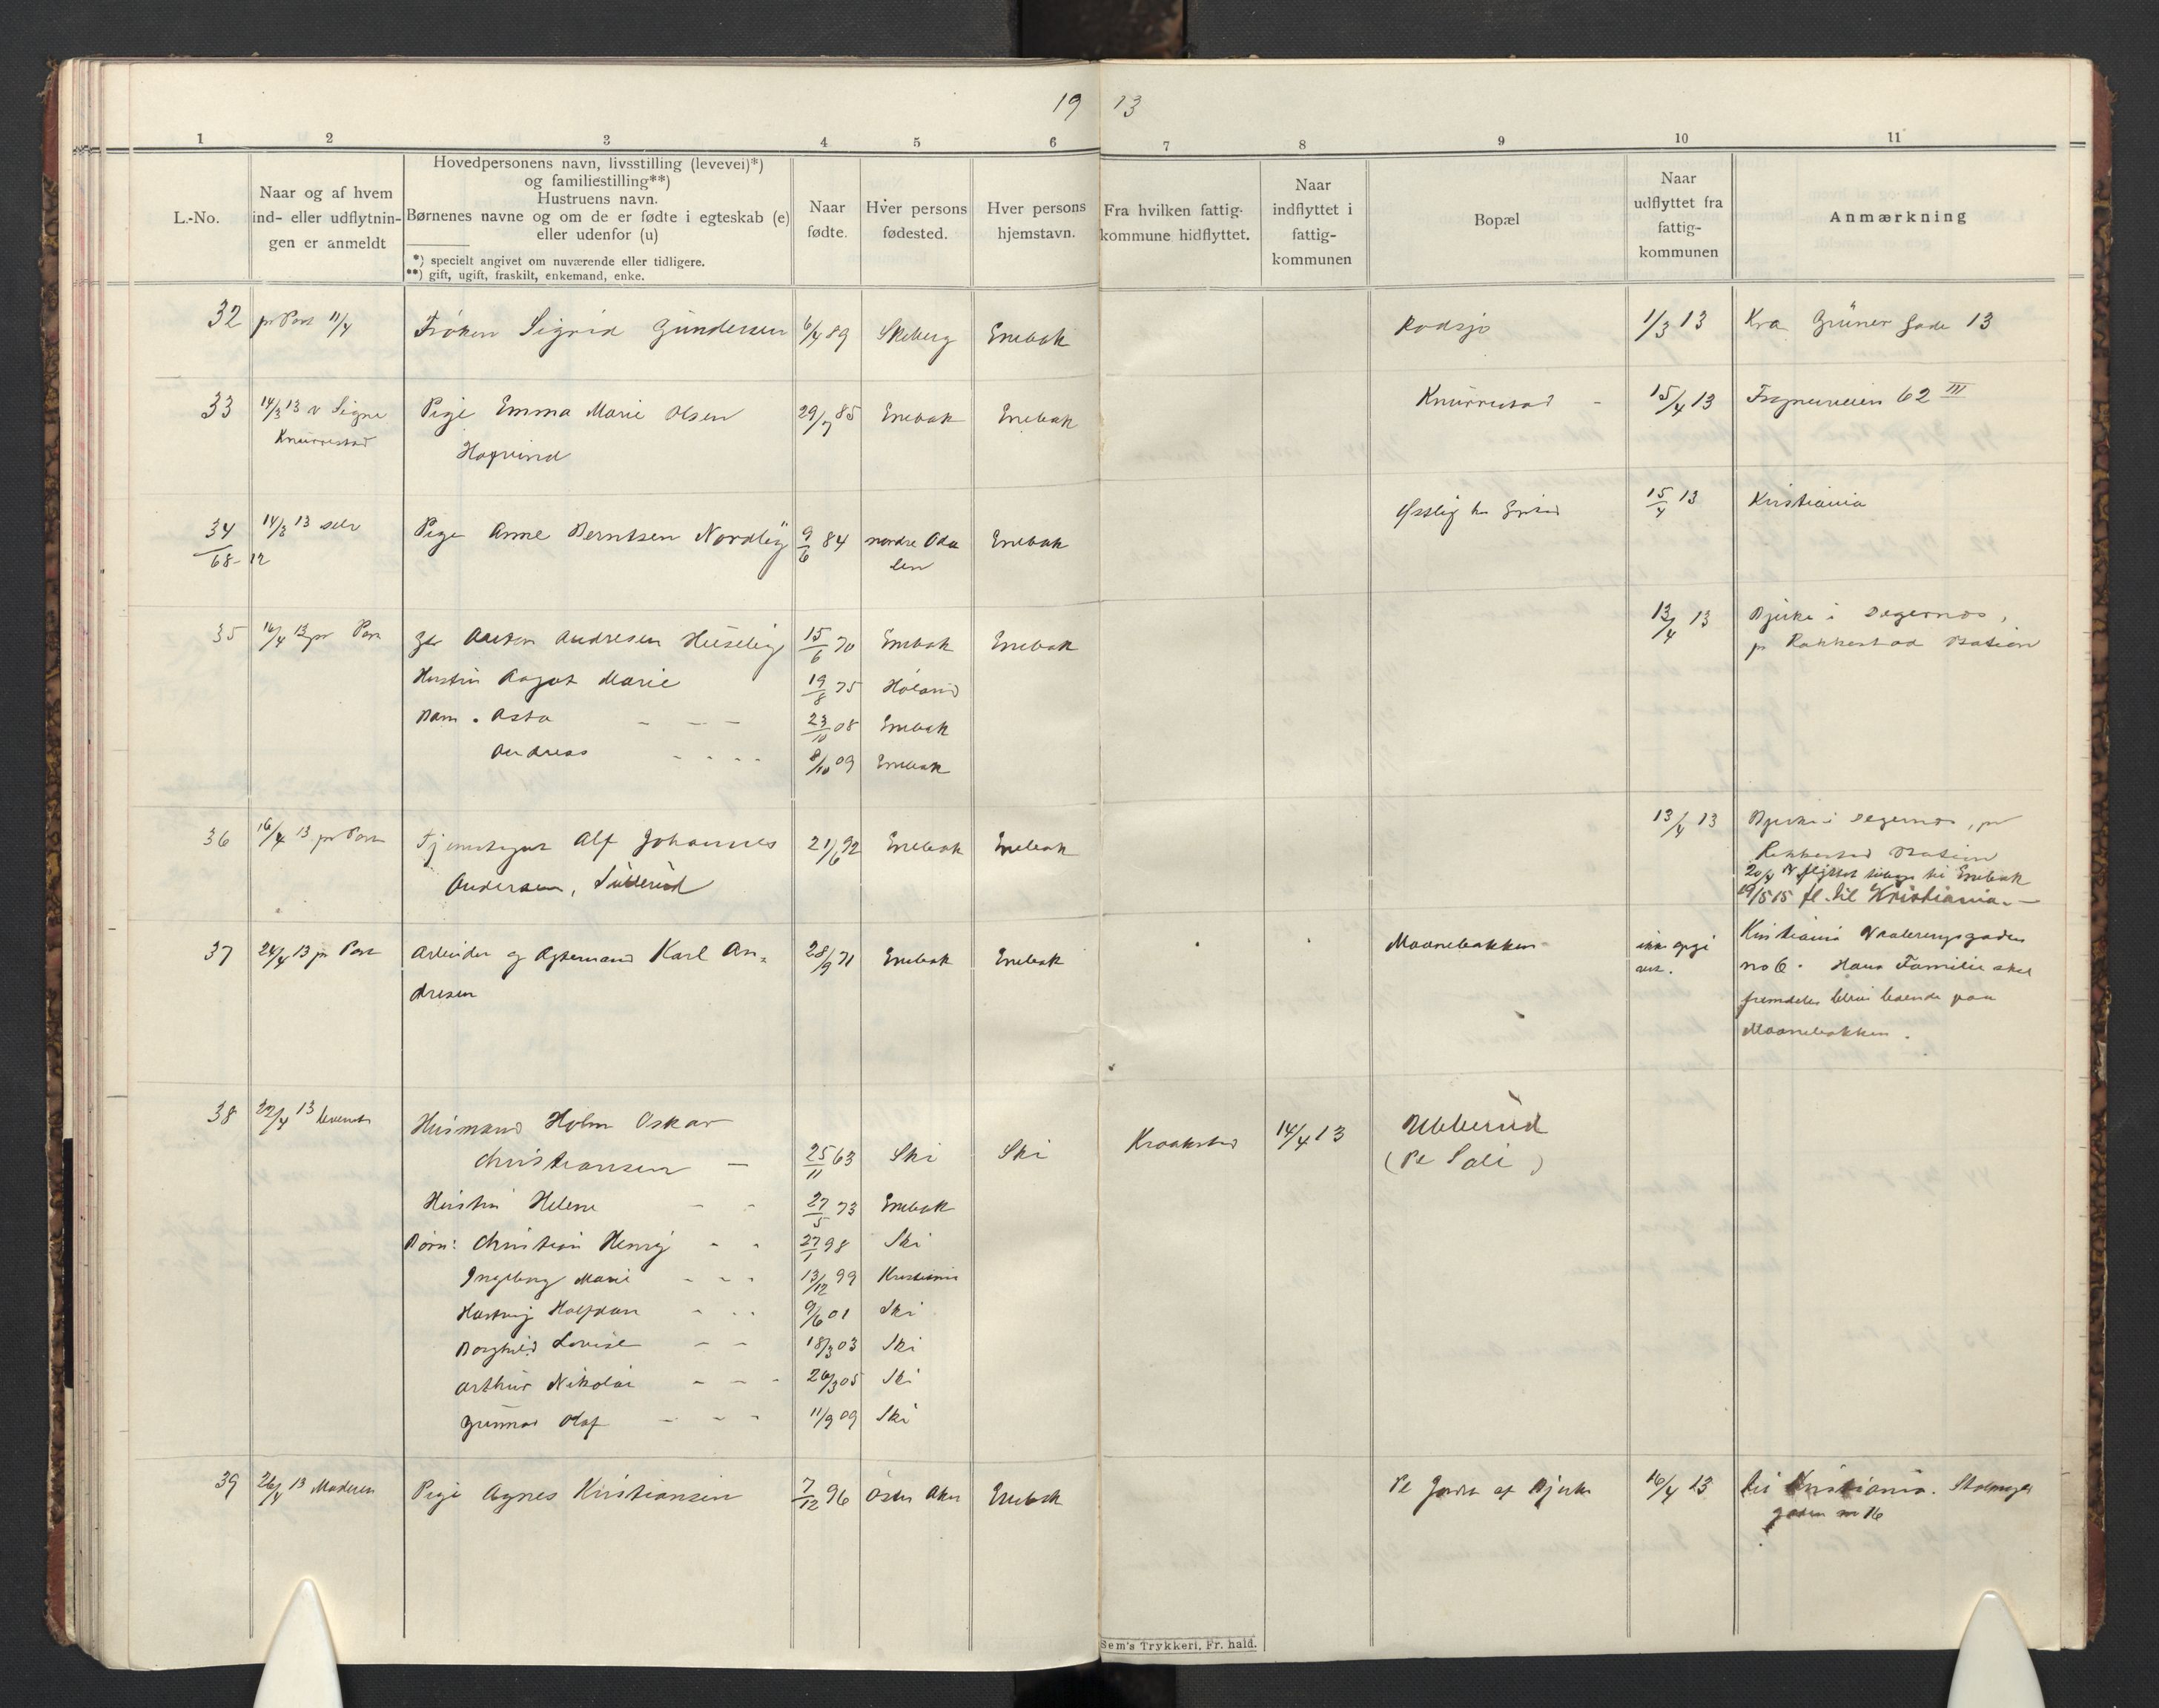 19 13
1 2 3 4 5 6 7 8 9 10 11
L.-No.
Naar og af hvem
ind- eller udflytnin-
gen er anmeldt
Hovedpersonens navn, livsstilling (levevei)*)
og familiestilling**)
Hustruens navn.
Børnenes navne og om de er fødte i egteskab (e)
eller udenfor (u)
*) specielt angivet om nuværende eller tidligere.
**) gift, ugift, fraskilt, enkemand, enke.
Naar
fødte.
Hver persons
fødested.
Hver persons
hjemstavn.
Fra hvilken fattig-
kommune hidflyttet.
Naar
indflyttet i
fattig-
kommunen
Bopæl
Naar
udflyttet fra
fattig-
kommunen
Anmærkning
32 pr Post 11/4 Frøken Sigrid Gundersen 6/4 89 Skeberg Enebak Rodsjø 1/3 13 Kra Grüner Gade 13
33 14/3 13 v Signe Pige Emma Marie Olsen 29/7 85 Enebak Enebak Knurrestad - 15/4 13 Frognerveien 62 III
Knurrestad Hagvind
34 14/3 13 selv Pige Anne Berntsen Nordlig 9/6 84 nordre Oda Enebak 15/4 13 Kristiania
68-12 len
35 16/4 13 pr Post Anton Andresen 15/6 70 Enebak Enebak 13/4 13 Bjerke i Degernes,
pr Rakkestad Station
Hustru Aagot Marie 19/8 75 Høland
Barn . Asta - - - 23/10 08 Enebak
Andreas - - - - 8/10 09 Enebak
36 16/4 13 pr Post Tjenestegut Alf Johannes 21/6 92 Enebak Enebak 13/4 13 Bjerke i Degernes, pr
Andersen, Rakkestad Station
20/4 14 flyttet tilbage til Enebak
19/5 15 fl. til Kristiania. -
37 24/4 13 pr Post Arbeider og Karl An- 28/9 71 Enebak Enebak Maanebakken ikke opgi Kristiania Vaalerengsgaden
dresen vet. no 6. Hans Familie skal
fremdeles blive boende paa
Maanebakken.
38 22/4 13 Husmand Holm Oskar
Christiansen - 25/11 63 Ski Ski Kraakstad 14/4 13 Ubberud
Hustru Helene - - 27/5 73 Enebak
Børn: Christian Henry - - 27/1 98 Ski
Ingeborg Marie - - - 13/12 99 Kristiania
Hartvig Halfdan - - - 9/6 01 Ski
Borghild Lovise - - 18/3 03 Ski
Arthur Nikolai - - - 26/3 05 Ski
Gunnar Olaf - - - 11/9 09 Ski
39 26/4 13 Moderen Pige Agnes Kristiansen 7/12 96 Øster Aker Enebak Pl af Bjerke 16/4 13 til Kristiania.
gaden no 16
Sem's Trykkeri, Fr. hald.